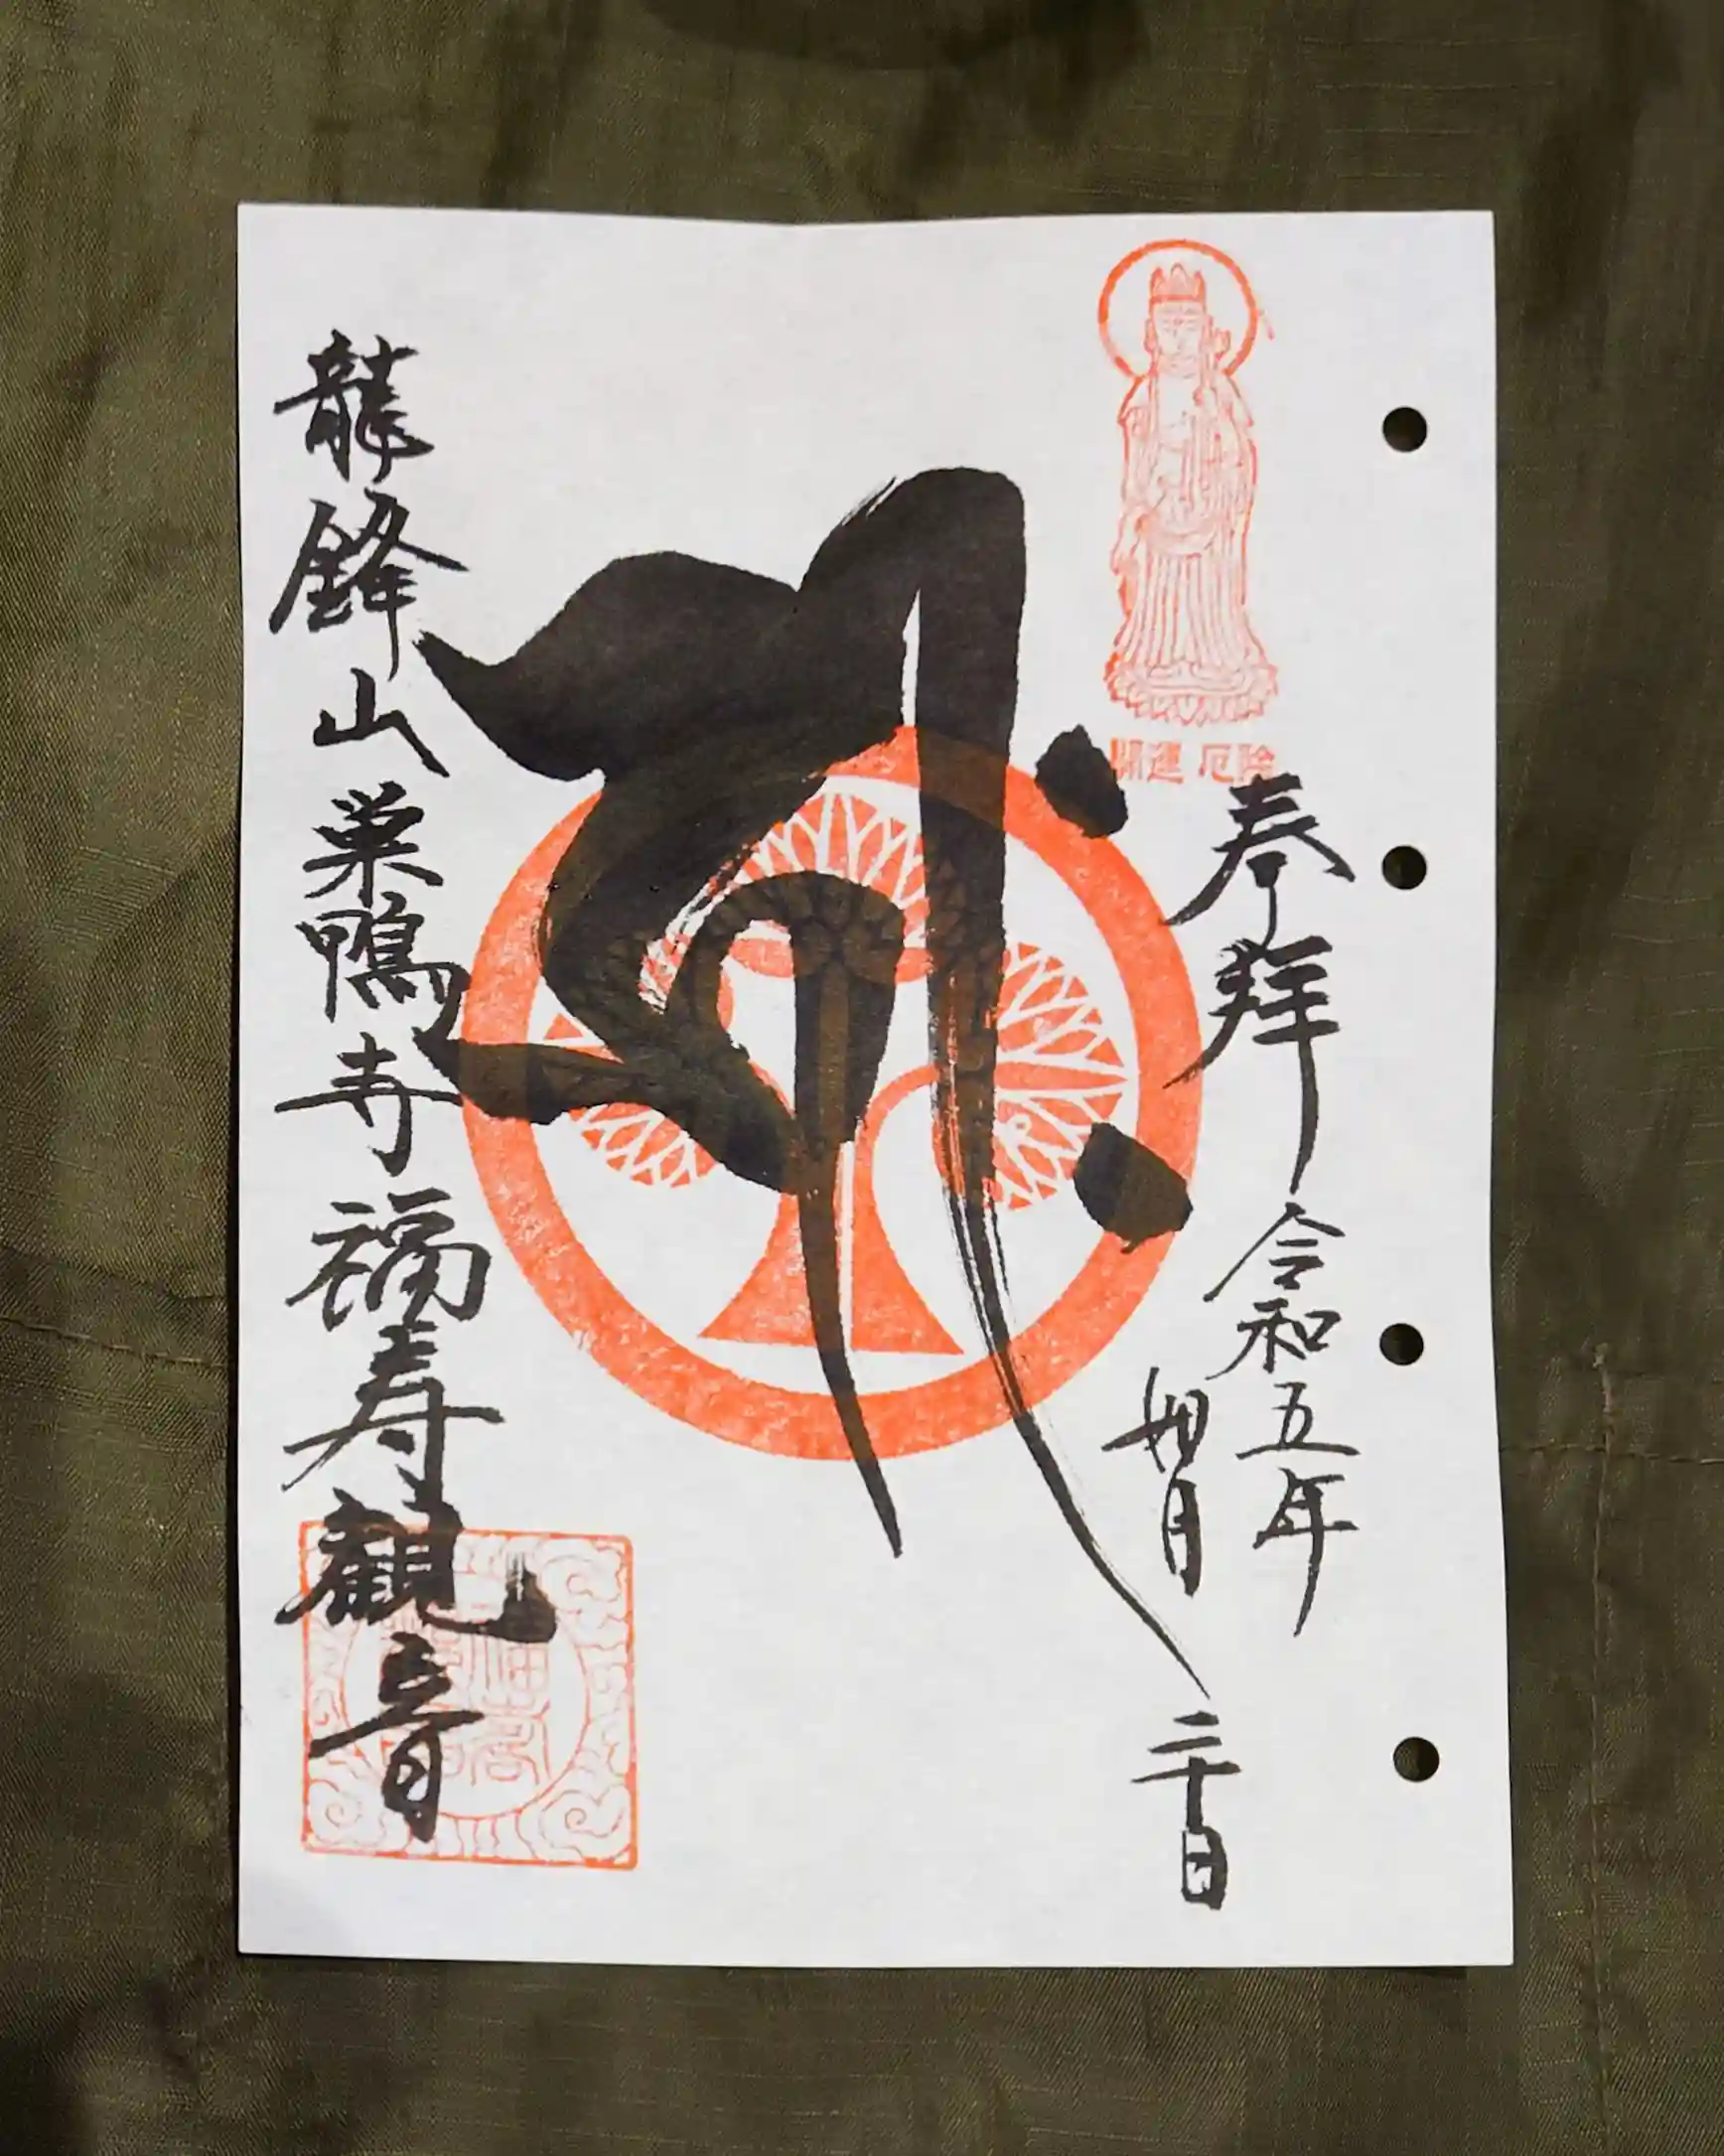 開運 厄除
奉拝
令和五年
如月
二十日
𑖭𑖾
龍鋒山巣鴨寺福寿觀音